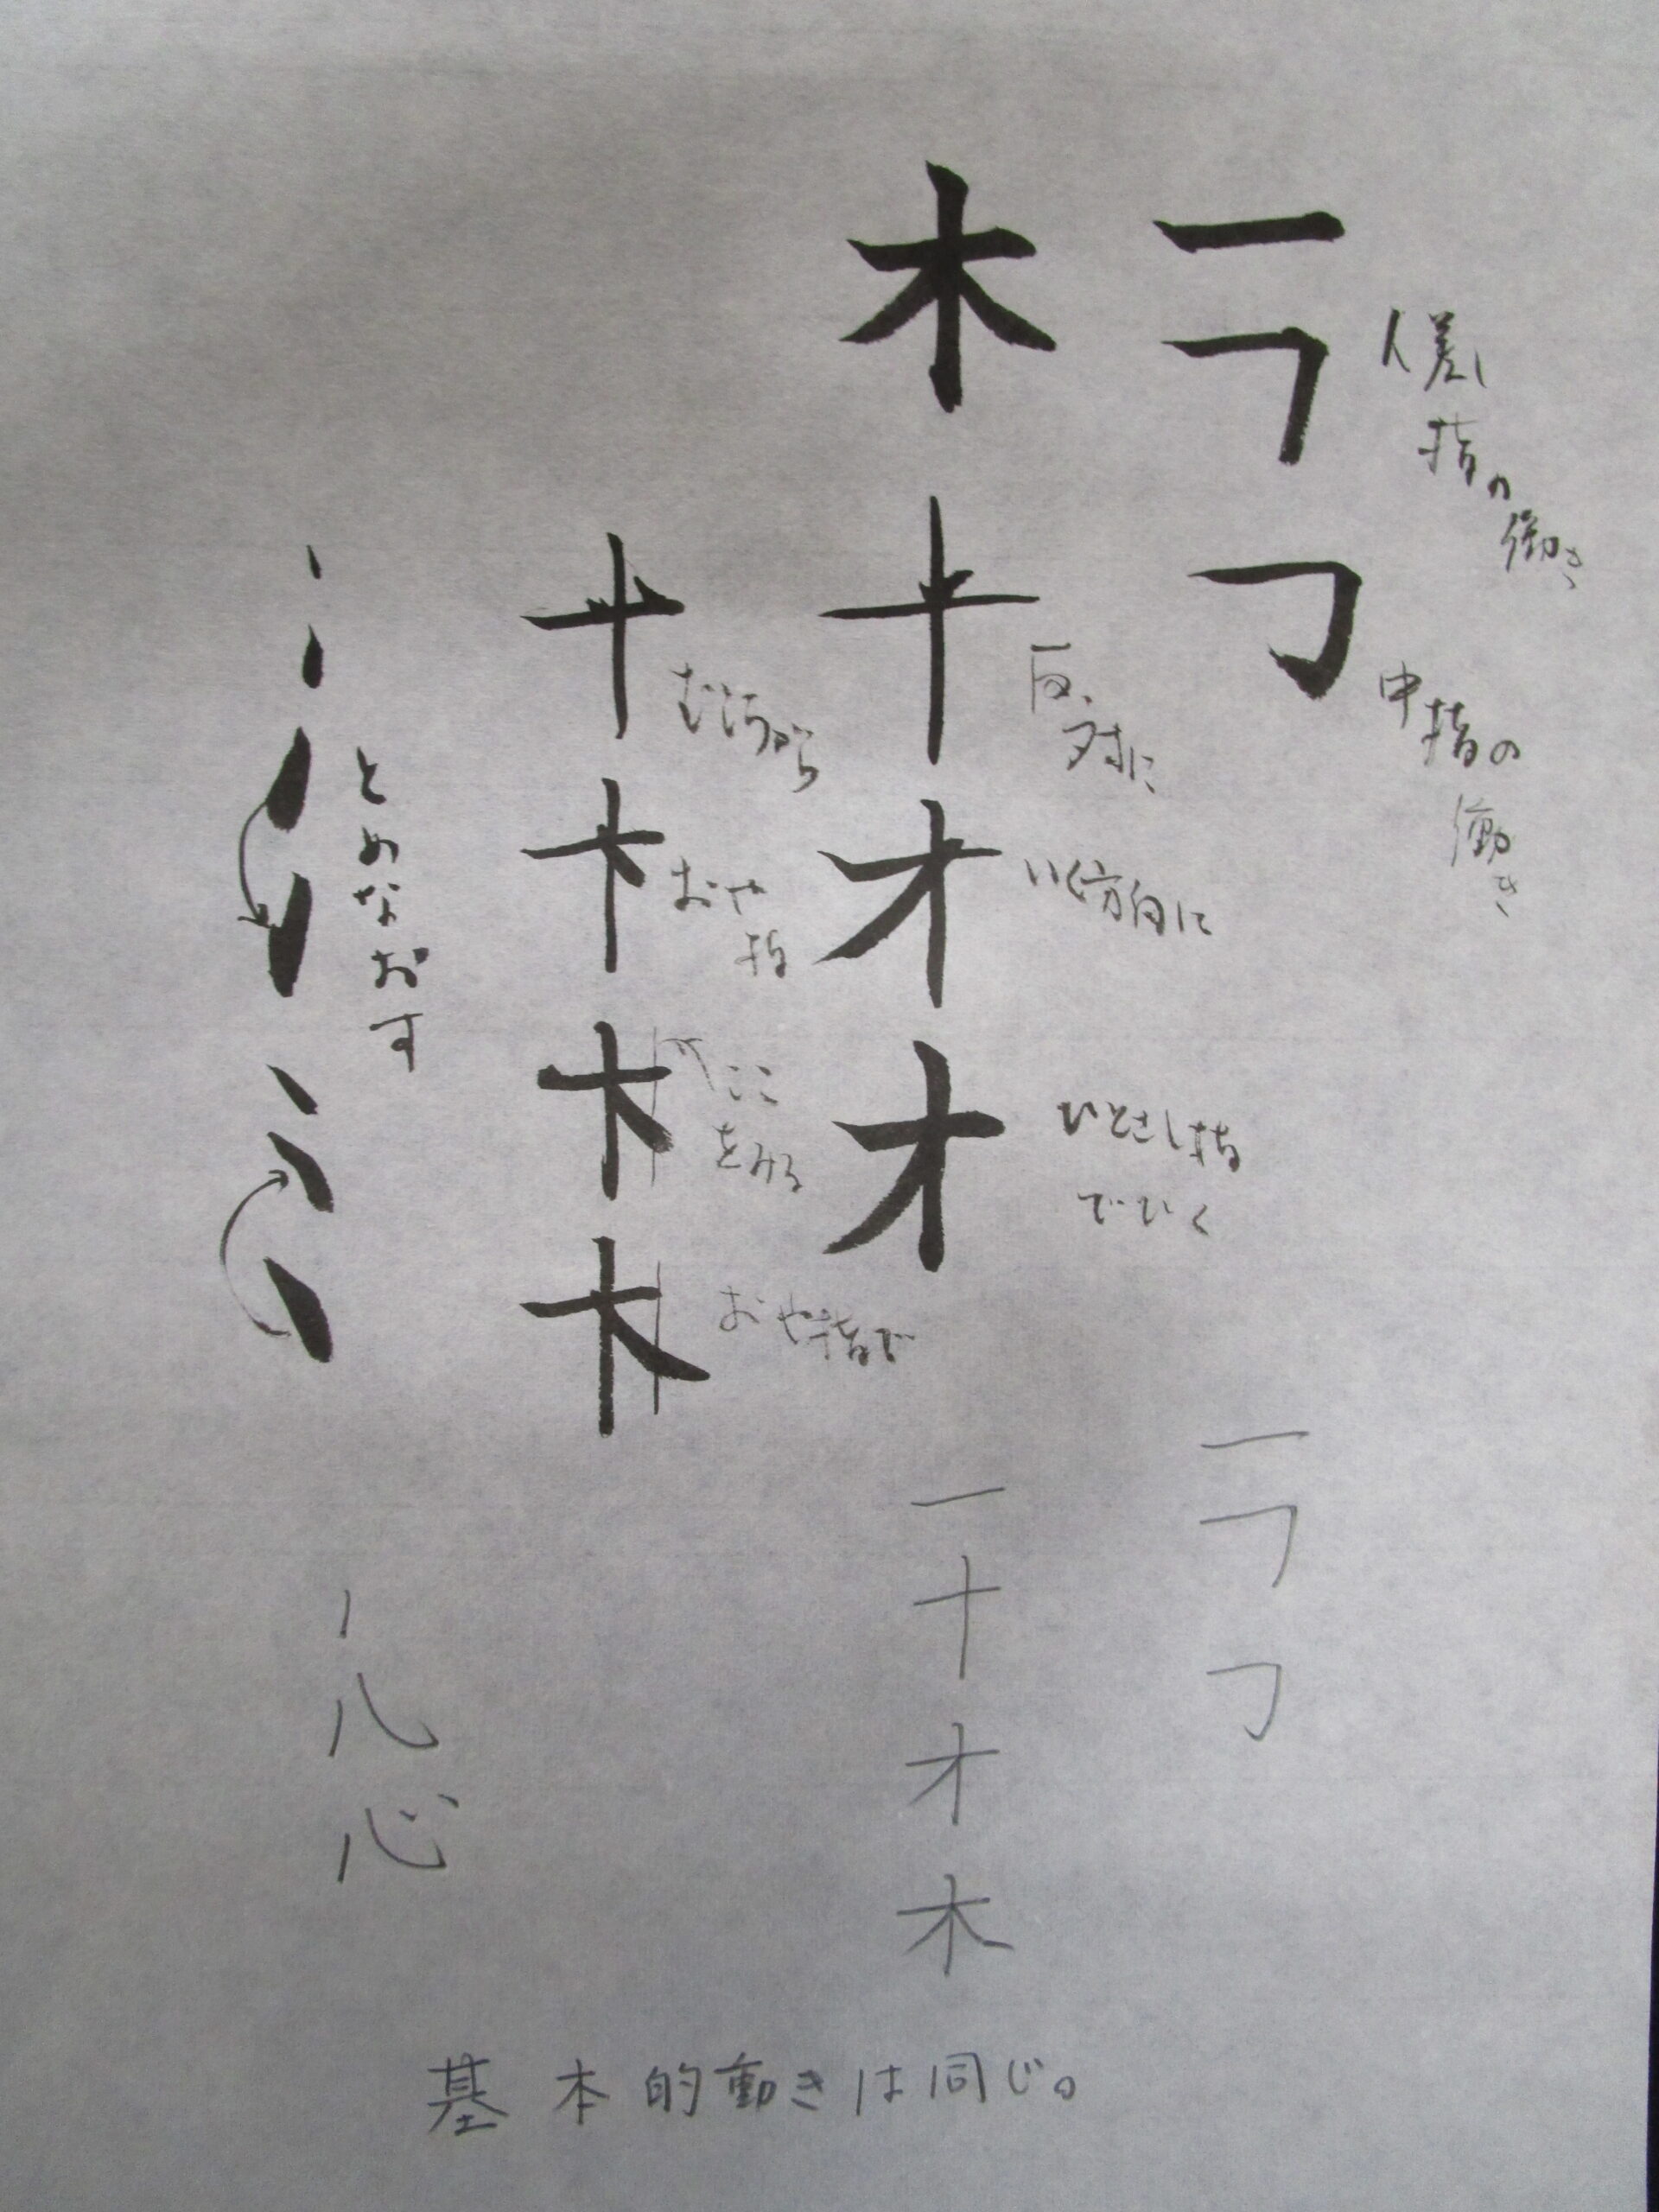 一
フ
人差し
指の
働き
コ
中指の
働き
木
十
反対に
才
いく方向に
才
ひとさし指
でひく
十
むこうから
おや
指
ここ
をみる
おや指で
とめなおす
一
フ
コ
一
十
才
木
心
基本的動きは同じ。